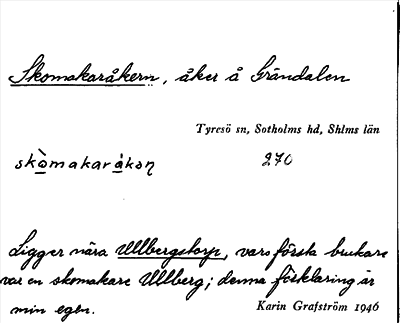 Skomakaråkern, åker å Grändalen
Tyresö sn, Sotholms hd, Shlms län
skòmakaråkəɳ 270
Ligger nära Ullbergstorp, vars första brukare
var en skomakare Ullberg; denna förklaring är
min egen.
Karin Grafström 1946